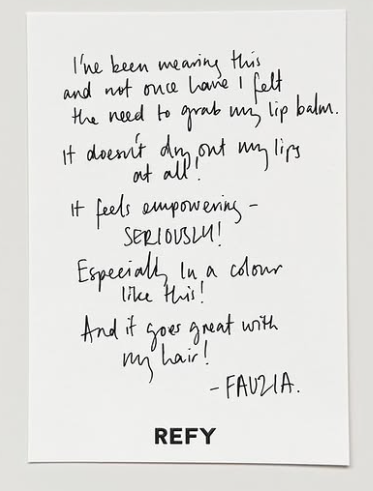 I've been wearing this
and not once have I felt
the need to grab my lip balm.
It doesn't dry out my lips
at all!
It feels empowering -
SERIOUSLY!
Especially in a colour
like this!
And it goes great with
my hair!
- FAUZIA.
REFY